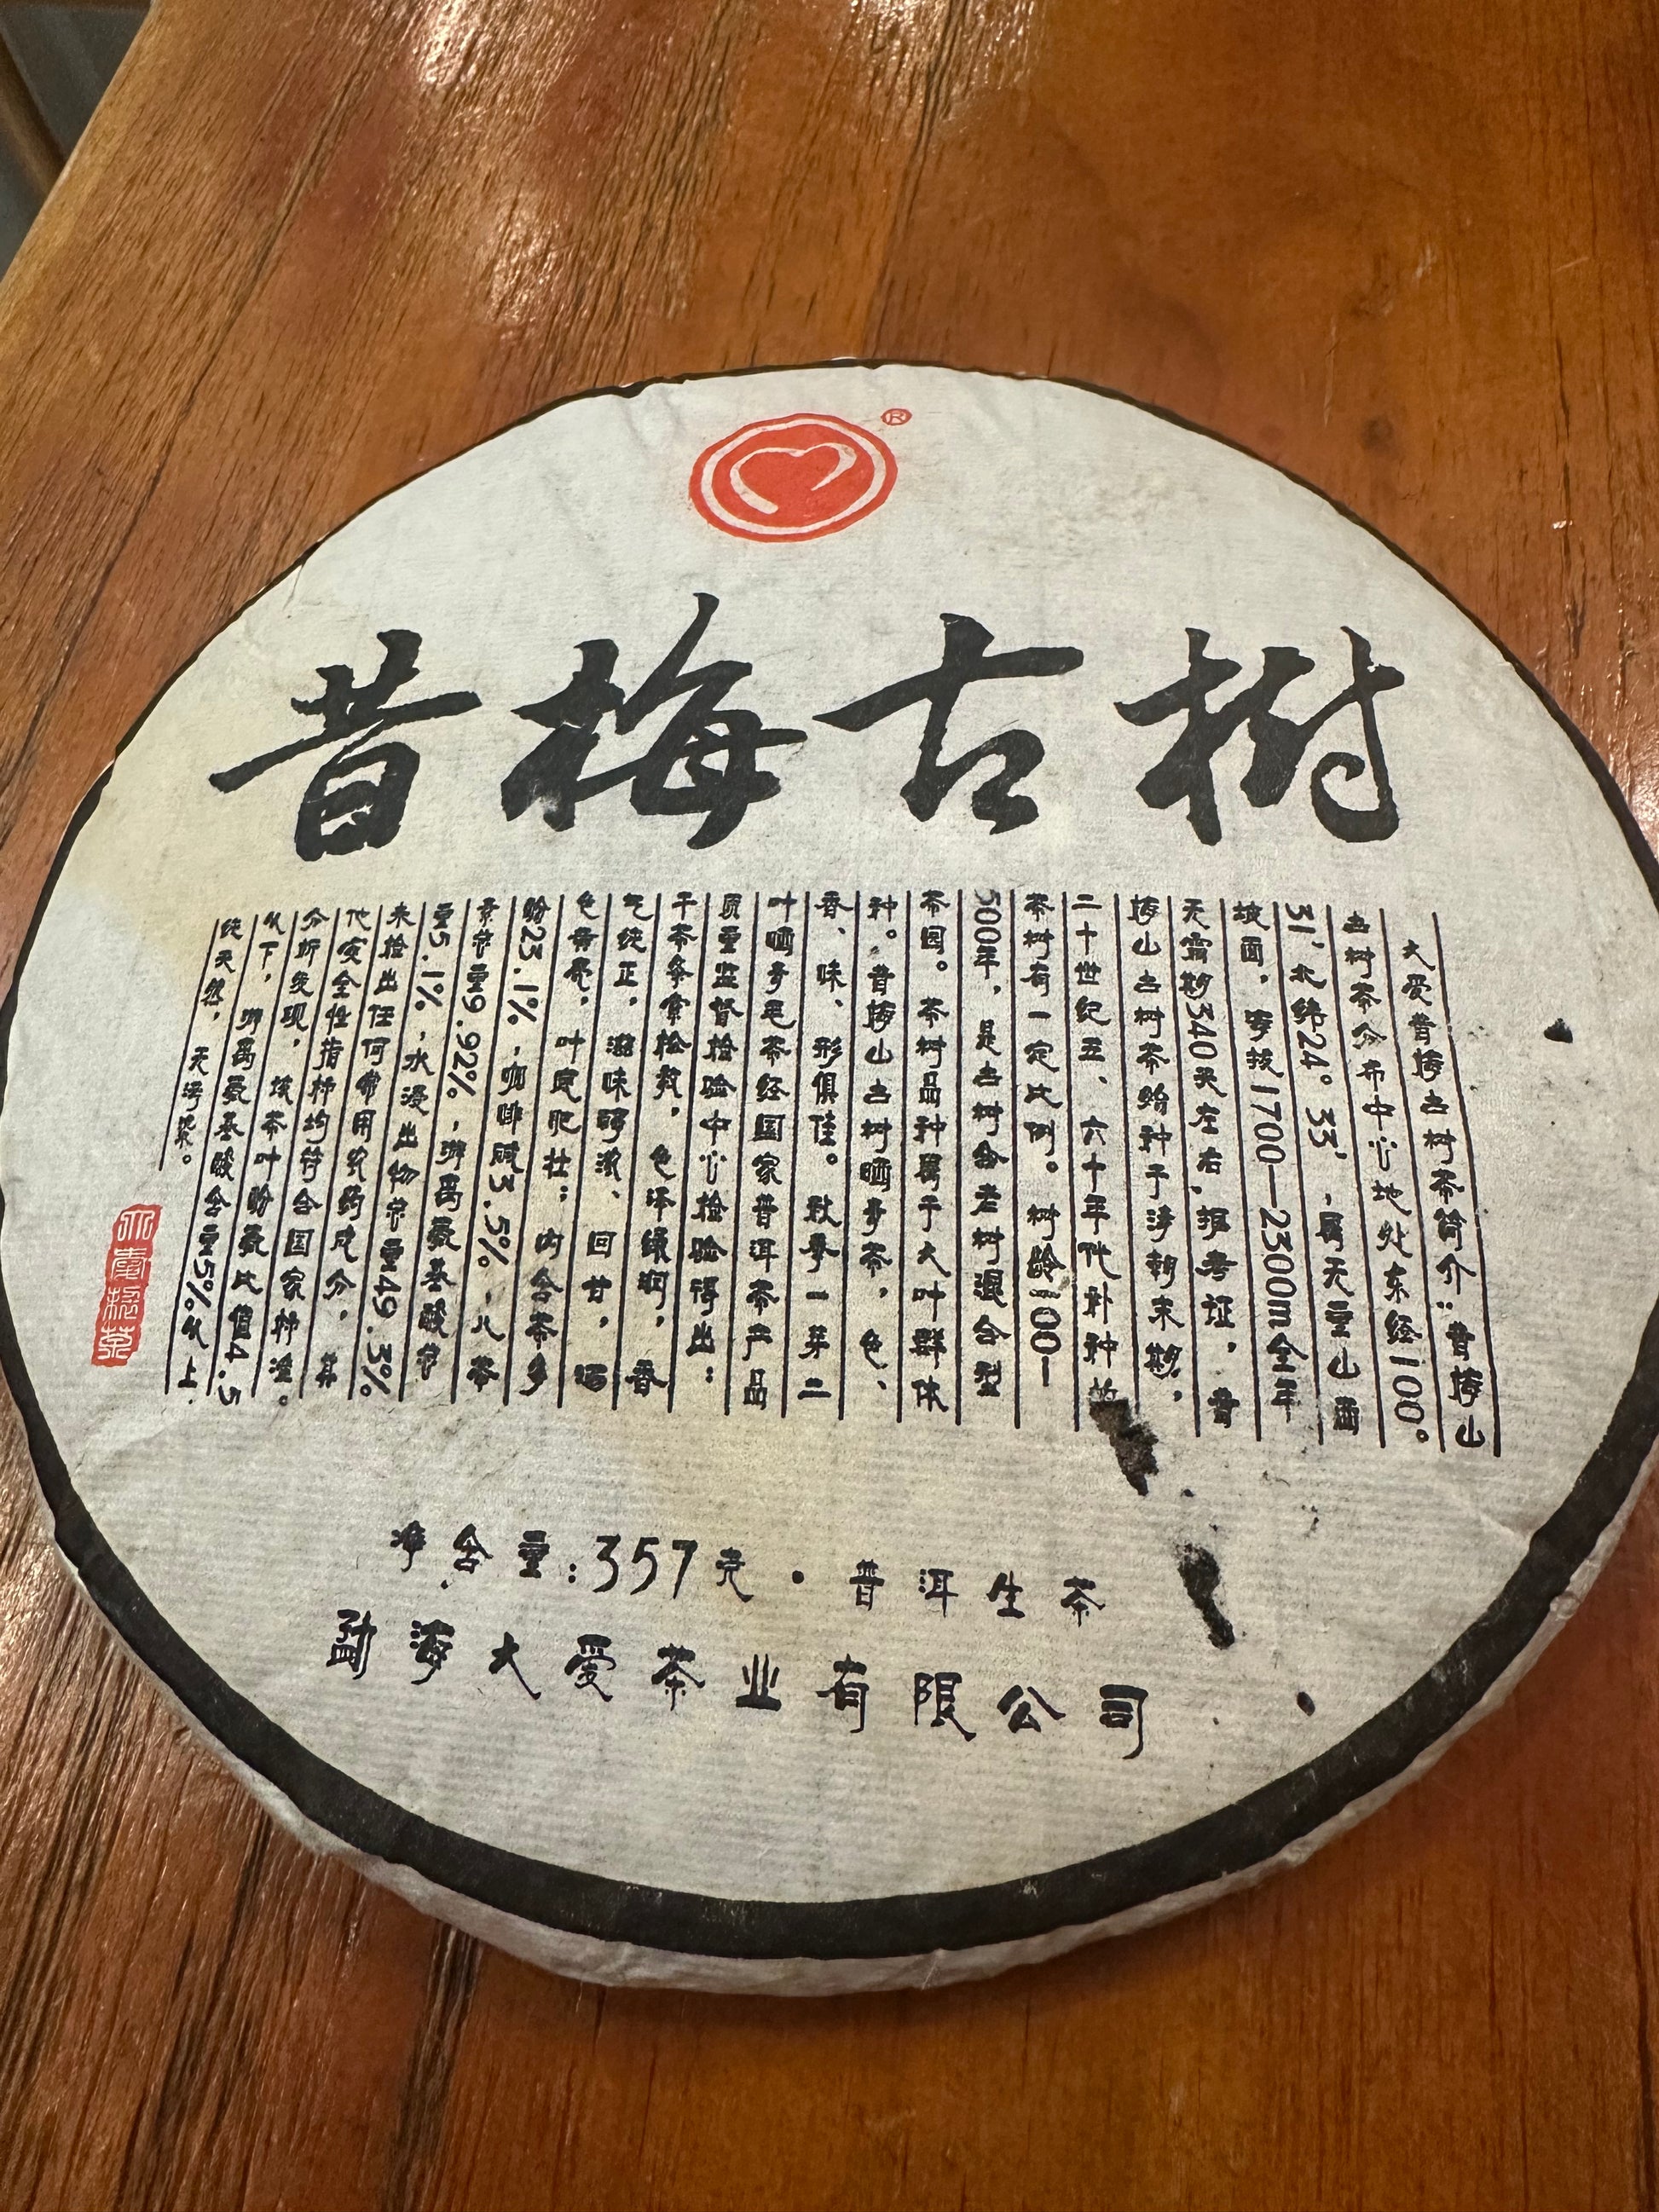 ®
昔梅古树
大爱昔梅古树茶简介：昔梅山
古树茶分布中心地处东经100°
31′北纬24°33′，属无量山西
坡面，海拔1700—2300m全年
无霜期340天左右，据考证，昔
梅山古树茶始种于清朝末期，
二十世纪五、六十年代补种的
茶树有一定比例。树龄100—
500年，是古树含老树混合型
茶园。茶树品种属于大叶群体
种。昔梅山古树晒青茶，色、
香、味、形俱佳。秋季一芽二
叶晒青毛茶经国家普洱茶产品
质量监督检验中心检验得出：
干茶条索松紧，色泽绿润，香
气纯正，滋味醇浓、回甘，汤
色黄亮，叶底肥壮；内含茶多
酚23.1%，咖啡碱3.5%，儿茶
素总量9.92%，游离氨基酸总
量5.1%，水浸出物总量49.3%
未检出任何常用农药成分，其
他安全性指标均符合国家标准。
分析发现，该茶叶酚氨比值4.5
以下，游离氨基酸含量5%以上，
纯天然，无污染。
净含量：357克·普洱生茶
勐海大爱茶业有限公司